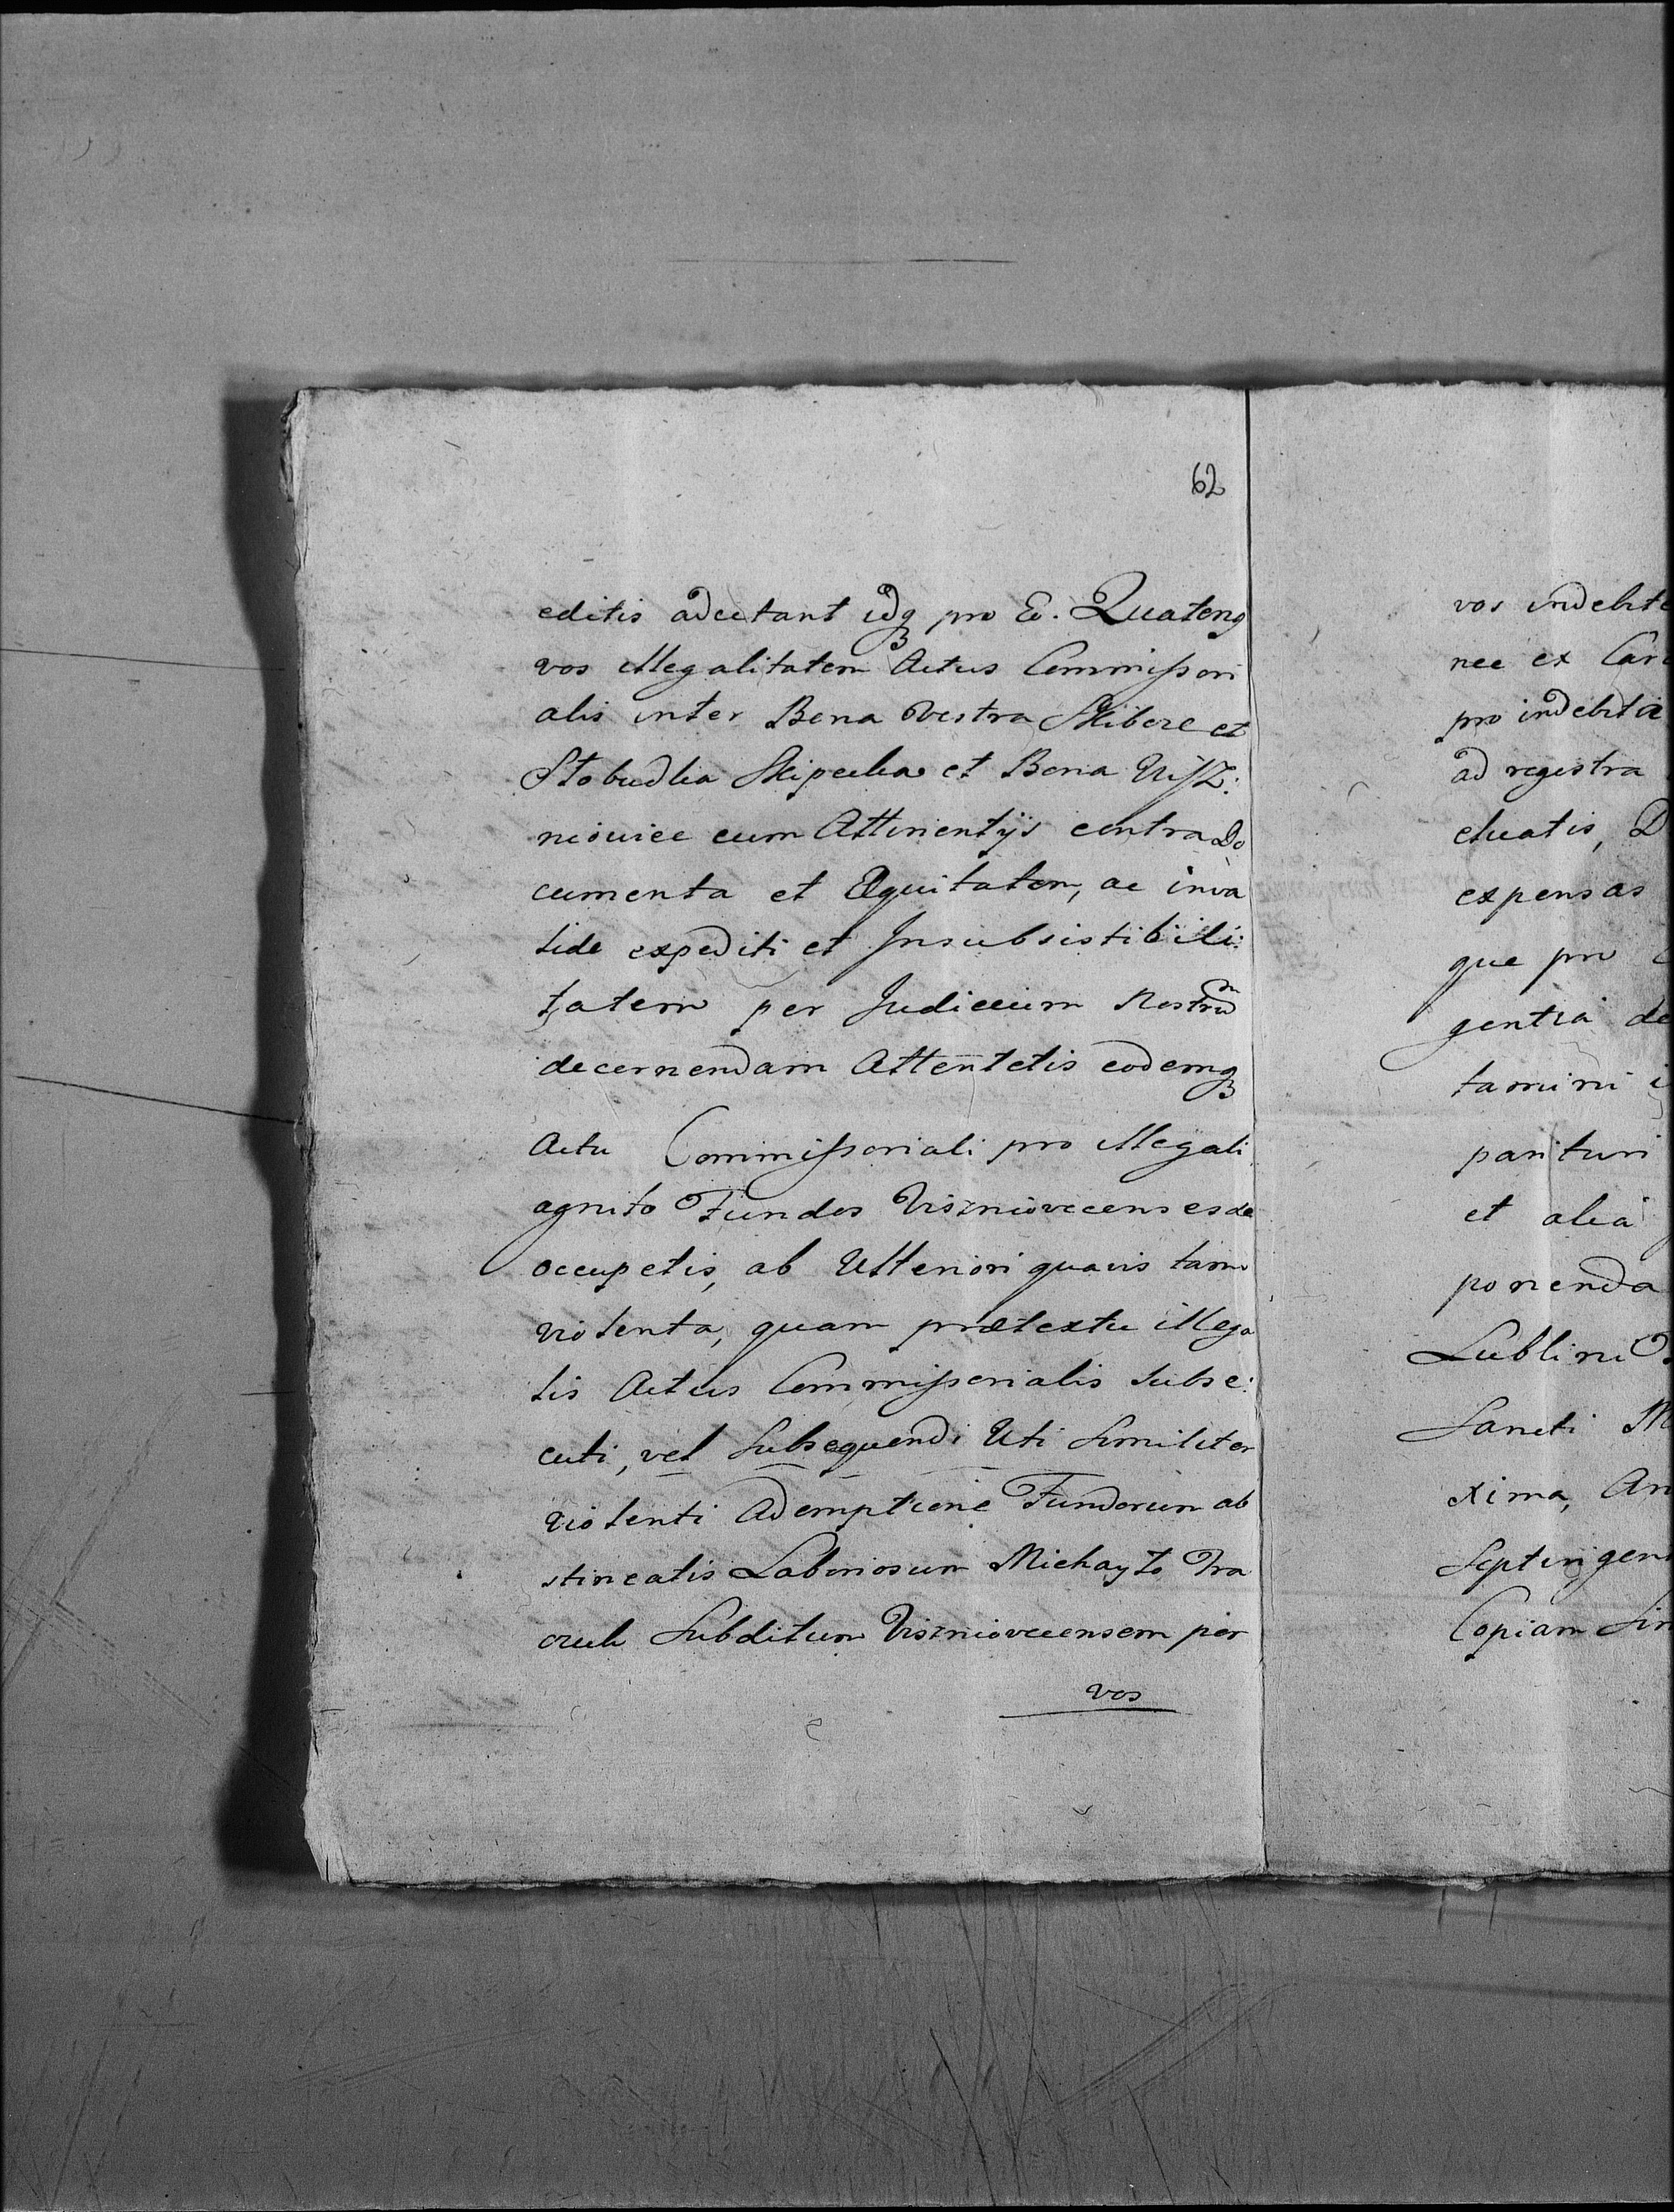 62
editis adcitant idq pro Eo. Quatenq
vos illegalitatem Actus Commissori
alis inter Bona Vestra Skibore et
Stobudka et Bona Uisz:
niouiec cum Attinentijs contra Do
cumenta et Æquitatem, ac inva
lide expediti et Insubsistibili:
tatem per Judicium Nostrum
decernendam Attentetis eodemq
Actu Commissoriali pro illegali
agnito Fundos Viszniovecenses de
occupetis, ab Ulteriori quavis tam
violenta, quam prætextu illega
lis Actus Commissorialis subse:
cuti, vel Subsequendi Uti Similiter
violenti Ademptione Fundorum ab
stineatis Laboriosum Michayło Tra
czuk Subditum Viszniovecensem per
vos
vos indebite
nec ex
pro indebite
ad registra
ctuatis, D
expensas
que pro
gentia de
tamini i
parituri
et alia
ponenda
Lublini
Sancti M
xima, An
Septingen
Copiam Sin